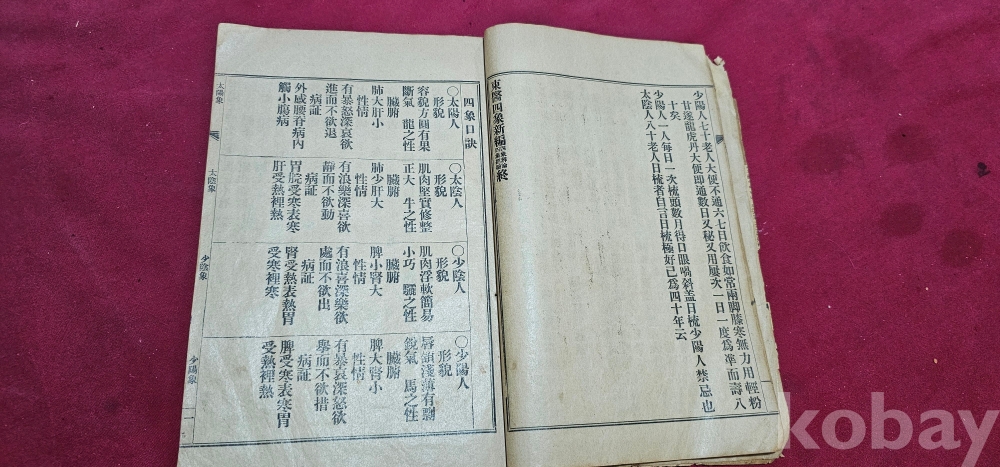 少陽人七十老人大便不通六七日飮食如常兩脚膝寒無力用輕粉
甘遂龍虎丹大便即通數日又秘又用屢次一日一度爲準而壽八
十矣
少陽人一人每日一次梳頭數月得口眼喎斜盖日梳少陽人禁忌也
太陰人八十老人日梳者自言日梳極好已爲四十年云
東醫四象新編
終
四象口訣
○太陽人
形貌
容貌方圓有果
斷氣 龍之性
臟腑
肺大肝小
性情
有暴怒深哀欲
進而不欲退
病証
外感腰脊病內
觸小膓病
○太陰人
形貌
肌肉堅實修整
正大 牛之性
臟腑
肺少肝大
性情
有浪樂深喜欲
靜而不欲動
病証
胃脘受寒表寒
肝受熱裡熱
○少陰人
形貌
肌肉浮軟簡易
小巧 驢之性
臟腑
脾小腎大
性情
有浪喜深樂欲
處而不欲出
病証
腎受熱表熱胃
受寒裡寒
○少陽人
形貌
唇頷淺薄有剽
銳氣 馬之性
臟腑
脾大腎小
性情
有暴哀深怒欲
擧而不欲措
病証
脾受寒表寒胃
受熱裡熱
太陽象
太陰象
少陰象
少陽象
一
kobay